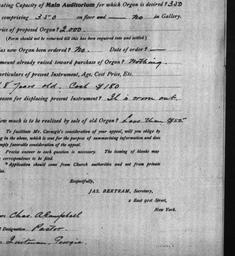 ating Capacity of Main Auditorium for which Organ is desired? 350
comprising 350 on floor and — No in Gallery.
rice of proposed Organ? 2,000.
(Form should not be returned till this has been inquired into and settled.)
as new Organ been ordered? No. Date of order? —
mount already raised toward purchase of Organ? Nothing.
articulars of present Instrument, Age, Cost Price, Etc.
8 years old. Cost $180
eason for displacing present Instrument? It is worn out.
ow much is to be realized by sale of old Organ? Less than
To facilitate Mr. Carnegie's consideration of your appeal, will you oblige by
ing in the above, which is sent for the purpose of summarizing information and does
imply favorable consideration of the appeal.
Precise answer to each question is necessary. The issuing of blanks may
correspondence to be filed.
* Application should come from Church authorities and not from private
Respectfully,
JAS. BERTRAM, Secretary,
2 East 91st Street,
New York.
Chas. A. Campbell
Designation. Pastor
Georgia